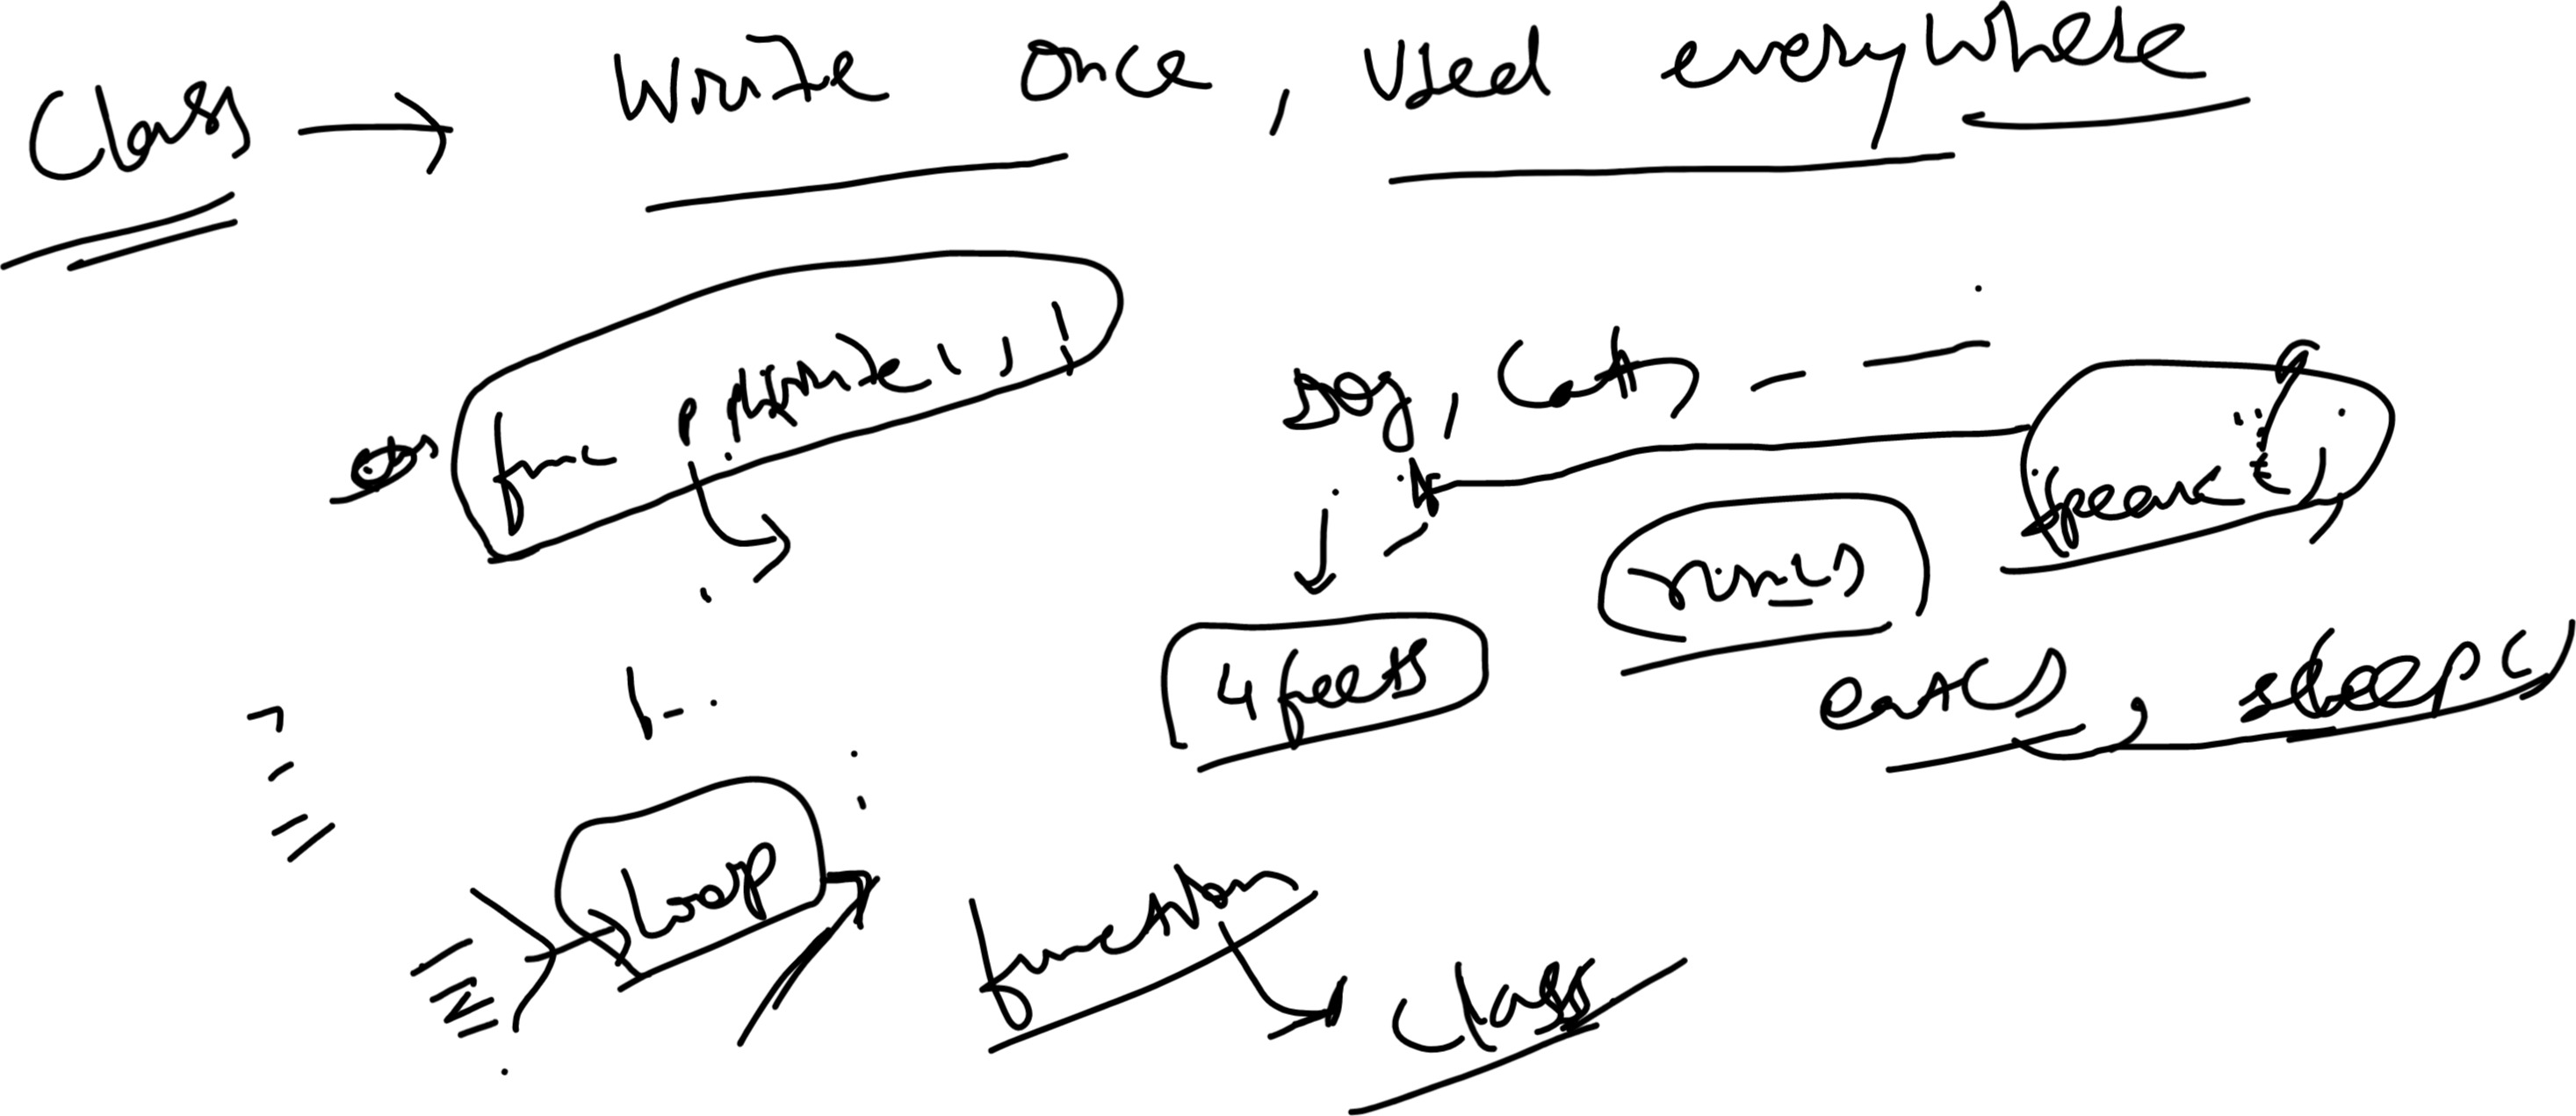 Class → Write once, Used everywhere
func
Dog, Cat, - -
speak()
runs()
4 feets
eat(), sleep()
Loop
function
class